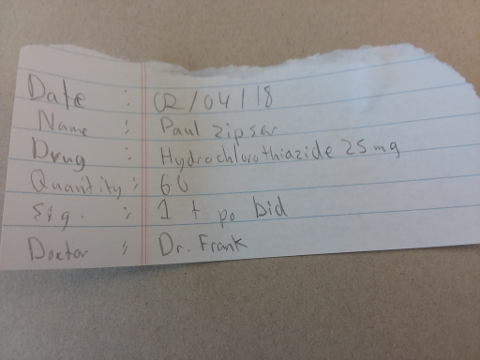 Date : 02/04/18
Name : Paul Zipser
Drug : Hydrochlorothiazide 25mg
Quantity : 60
Sig. : 1 t po bid
Doctor : Dr. Frank